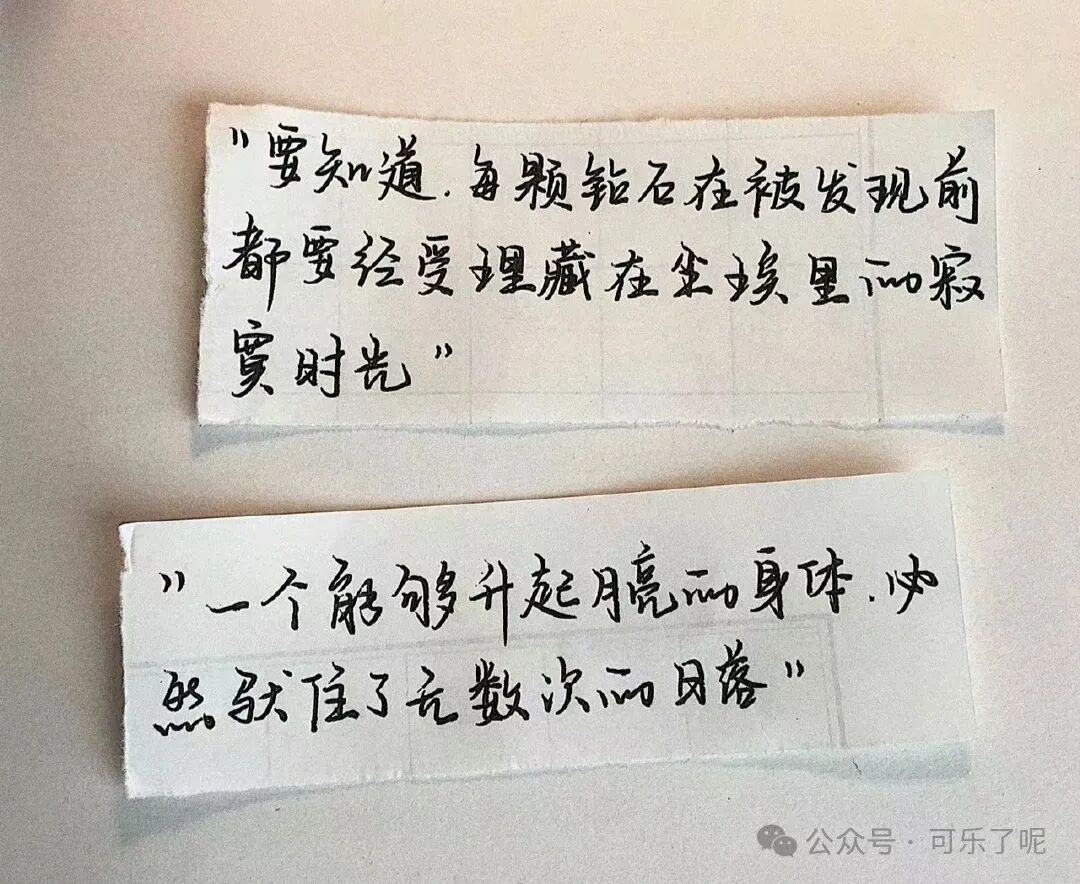 "要知道.每颗钻石在被发现前
都要经受埋藏在尘埃里的寂
寞时光"
"一个能够升起月亮的身体.必
然驮住了无数次的日落"
公众号·可乐了呢